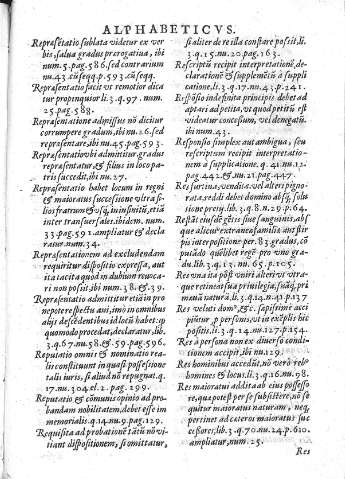 ALPHABETICVS.
Repræsētatio sublata videtur ex ver
bis, salua gradus prerogatiua, ibi
num.5.pag.586. sed contrarium
nu.43. cū seqq.p.593. cū seqq.
Repræsentatio facit vt remotior dica
tur propinquior li.3.q.97. num.
25.pag.588.
Repræsentatione admissus nō dicitur
corrumpere gradum, ibi nu.26. sed
repræsentare, ibi nu.45.pag.593.
Repræsentatio vbi admittitur gradus
repræsentatur, & filius in loco pa-
tris succedit, ibi nu.27.
Repræsentatio habet locum in regni
& maioratus successione vltra fi-
lios fratrum & vsq; in infinitū, etiā
inter transuersales. ibidem. num.
33.pag.591. ampliatur & decla
ratur. num.34.
Repræsentationem ad excludendam
requiritur dispositio expressa, aut
ita tacita quod in dubium reuoca-
ri non possit. ibi num.38. & 39.
Repræsentatio admittitur etiā in pro
nepote respectu aui, imo in omnibus
alijs descēdentibus id locū habet. &
quomodo procedat, declaratur, lib.
3.q.67.nu.58. & 59.pag.596.
Reputatio omnis & nominatio rea-
lis constituunt in quasi possessione
talis iuris, si aliud nō repugnat. q.
17.nu.304. el.2.pag.299.
Reputatio & cōmunis opinio ad pro-
bandam nobilitatem, debet esse im
memorialis. q.14.nu.9.pag.129.
Requisita ad probationē tātū nō vi-
tiant dispositionem, si omittatur,
si aliter de re illa constare possit, li.
3.q.15.nu.20.pag.163.
Rescriptū recipit interpretationē, de-
clarationē & supplemētū à suppli
catione, li.3.q.17.nu.43.p.241.
Respōsio indefinita principis debet ad
aptari ad petita, vt quod petitū est
videatur concessum, vel denegatū
ibi num.43.
Responsio simplex aut ambigua, seu
rescriptum recipit interpretatio-
nem à supplicatione, q.41.nu.12.
pag.442. & nu.21.pag.447.
Res furtina, vendita, vel alteri pigno-
rata, reddi debet domino absq; solu
tione pretij. lib.3.q.8.nu.29.p.64.
Restāt eiusdē gētis siue sanguinis, abs
que alicuius extranea familia ant stir
pis interpositione per.83. gradus, cō
putādo quēlibet regē pro vno gra-
du. lib.3.q.13. nu. 65.p.105.
Res vna si a pōst vniri alteri vt vtra-
que retineat sua priuilegia, suāq; pri
mæuā naturā li.3.q.14.nu.41.p.137
Res veluti domꝰ, &c. sæpissimè acci
piūtur, p personis, vt in exēplis hic
positis.li.3.q.14.nu.127.p.154.
Res à persona non ex diuerso condi-
tionem accepit, ibi nu.129.
Res hominibus accedūt, nō verò reb.
homines & locus, li.3.q.16.nu.98.
Res maioratui addita ab eius possesso
re, qua potest per se subsistere, nō se
quitur maioratus naturam, neq,
pertinet ad cæteros maioratus suc
cessores, lib.3.q.70.nu.24.p.610.
ampliatur, num.25.
Res